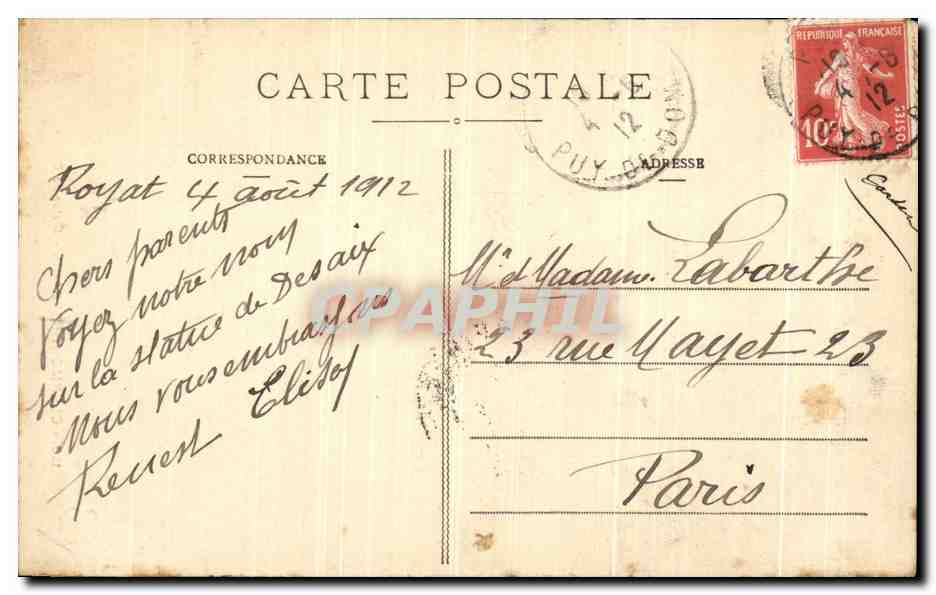 CARTE POSTALE
CORRESPONDANCE
ADRESSE
REPUBLIQUE FRANÇAISE
10c
POSTES
4 -8
12
PUY-DE-DOME
Royat 4 août 1912
Chers parents
Voyez notre nom
sur la statue de Desaix
Nous vous embrassons
Elisa
Mr et Madame Labarthe
23 rue Mayet 23
Paris
CPAPHIL